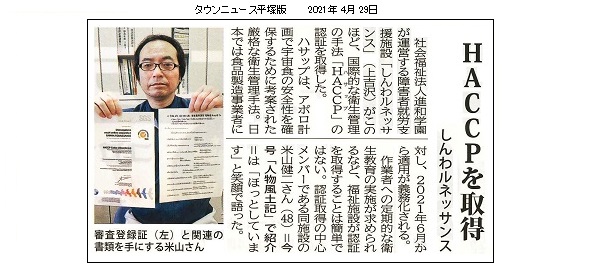 タウンニュース平塚版　2021年 4月 29日
HACCPを取得
しんわルネッサンス
社会福祉法人進和学園
が運営する障害者就労支
援施設「しんわルネッサ
ンス」（上吉沢）がこの
ほど、国際的な衛生管理
の手法「HACCP」の
認証を取得した。
ハサップは、アポロ計
画で宇宙食の安全性を確
保するために考案された
厳格な衛生管理手法。日
本では食品製造事業者に
対し、2021年6月か
ら適用が義務化される。
作業者への定期的な衛
生教育の実施が求められ
るなど、福祉施設が認証
を取得することは簡単で
はない。認証取得の中心
メンバーである同施設の
米山健二さん（48）＝今
号「人物風土記」で紹介
＝は「ほっとしていま
す」と笑顔で語った。
審査登録証（左）と関連の
書類を手にする米山さん